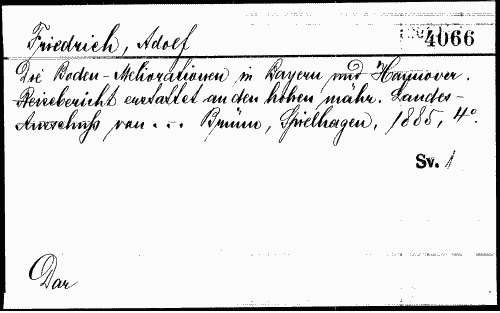 Friedrich, Adolf
4066
Die Boden-Meliorationen in Bayern und Hannover.
Reisebericht erstattet an den hohen mähr. Landes-
Ausschuß von ... Brünn, Spielhagen, 1885, 4°.
Sv. 1
Dar